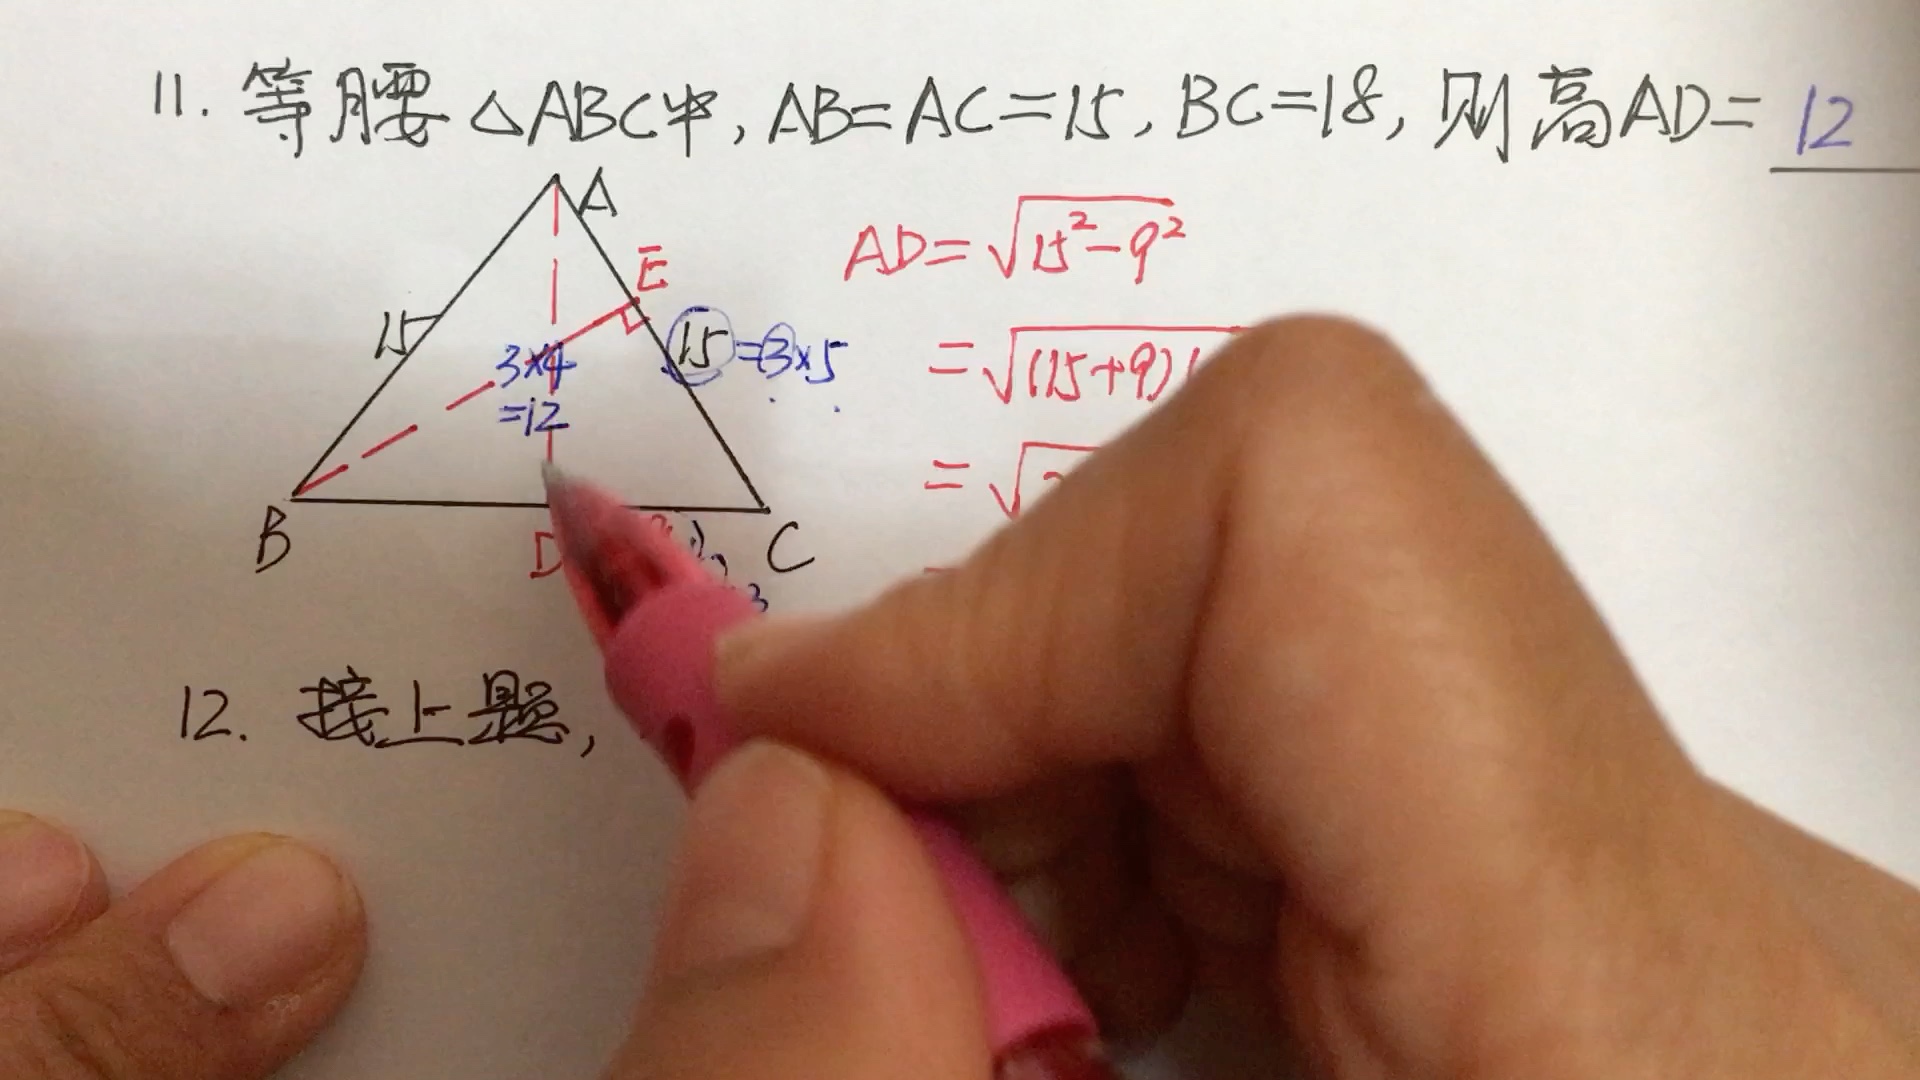 11. 等腰 △ABC中, AB=AC=15, BC=18, 则高AD= 12
A
E
15
15=3×5
3×4
=12
B
D
C
3
AD=√15²-9²
=√(15+9)(
=√2
12. 接上题,